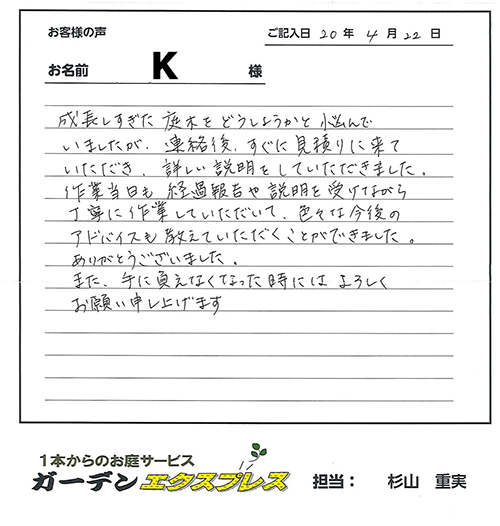 お客様の声
ご記入日 20 年 4 月 22 日
お名前 K 様
成長しすぎた 庭木を どうしようかと 悩んで
いましたが、連絡後、すぐに 見積りに 来て
いただき、詳しい 説明を していただきました。
作業当日も 経過報告や 説明を 受けながら
丁寧に 作業していただいて、色々な 今後の
アドバイスも 教えていただくことができました。
ありがとうございました。
また、手に 負えなくなった 時には よろしく
お願い申し上げます
1本からのお庭サービス
ガーデンエクスプレス 担当： 杉山 重実